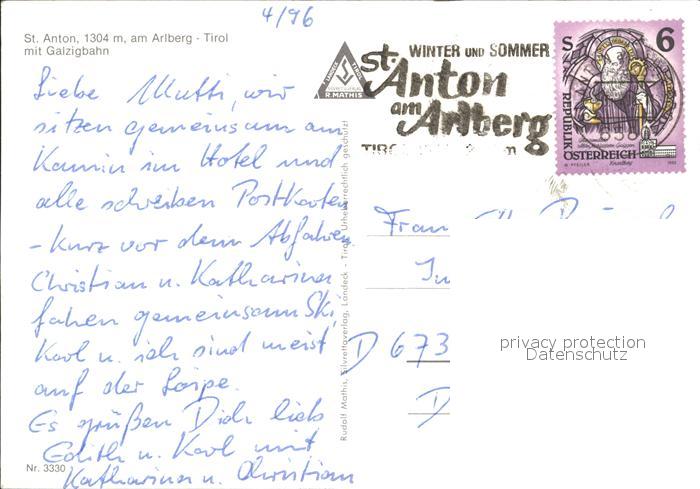 4/96
St. Anton, 1304 m, am Arlberg - Tirol
mit Galzigbahn
Liebe Mutti, wir
sitzen gemeinsam am
Kamin im Hotel und
alle schreiben Postkarten
- kurz vor dem Abfahren
Christian u. Katharina
fahren gemeinsam Ski,
Karl u. ich sind meist
auf der Loipe.
Es grüßen Dich lieb
Edith u. Karl mit
Katharina u. Christian
Nr. 3330
R. MATHIS
Rudolf Mathis, Silvrettaverlag, Landeck - Tirol Urheberrechtlich geschützt
WINTER UND SOMMER
St. Anton
am
Arlberg
S 6
REPUBLIK
ÖSTERREICH
Frau
D 673
D
privacy protection
Datenschutz